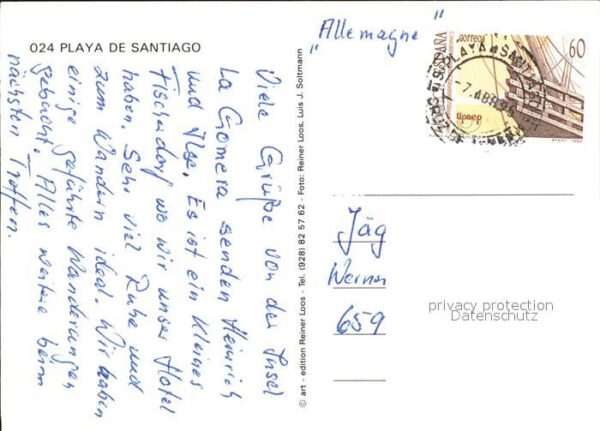 024 PLAYA DE SANTIAGO
Viele Grüße von der Insel
La Gomera senden Heinrich
und Ilse. Es ist ein kleines
Fischerdorf wo wir unser Hotel
haben. Sehr viel Ruhe und
zum Wandern ideal. Wir haben
einige geführte Wanderungen
gebucht. Alles weitere beim
nächsten Treffen.
© art - edition Reiner Loos - Tel. (928) 82 57 62 - Foto: Reiner Loos, Luis J. Soltmann
"Allemagne"
correos
ESPAÑA
60
upaep
PLAYA SANTIAGO
Jäg
Werner
659
privacy protection
Datenschutz